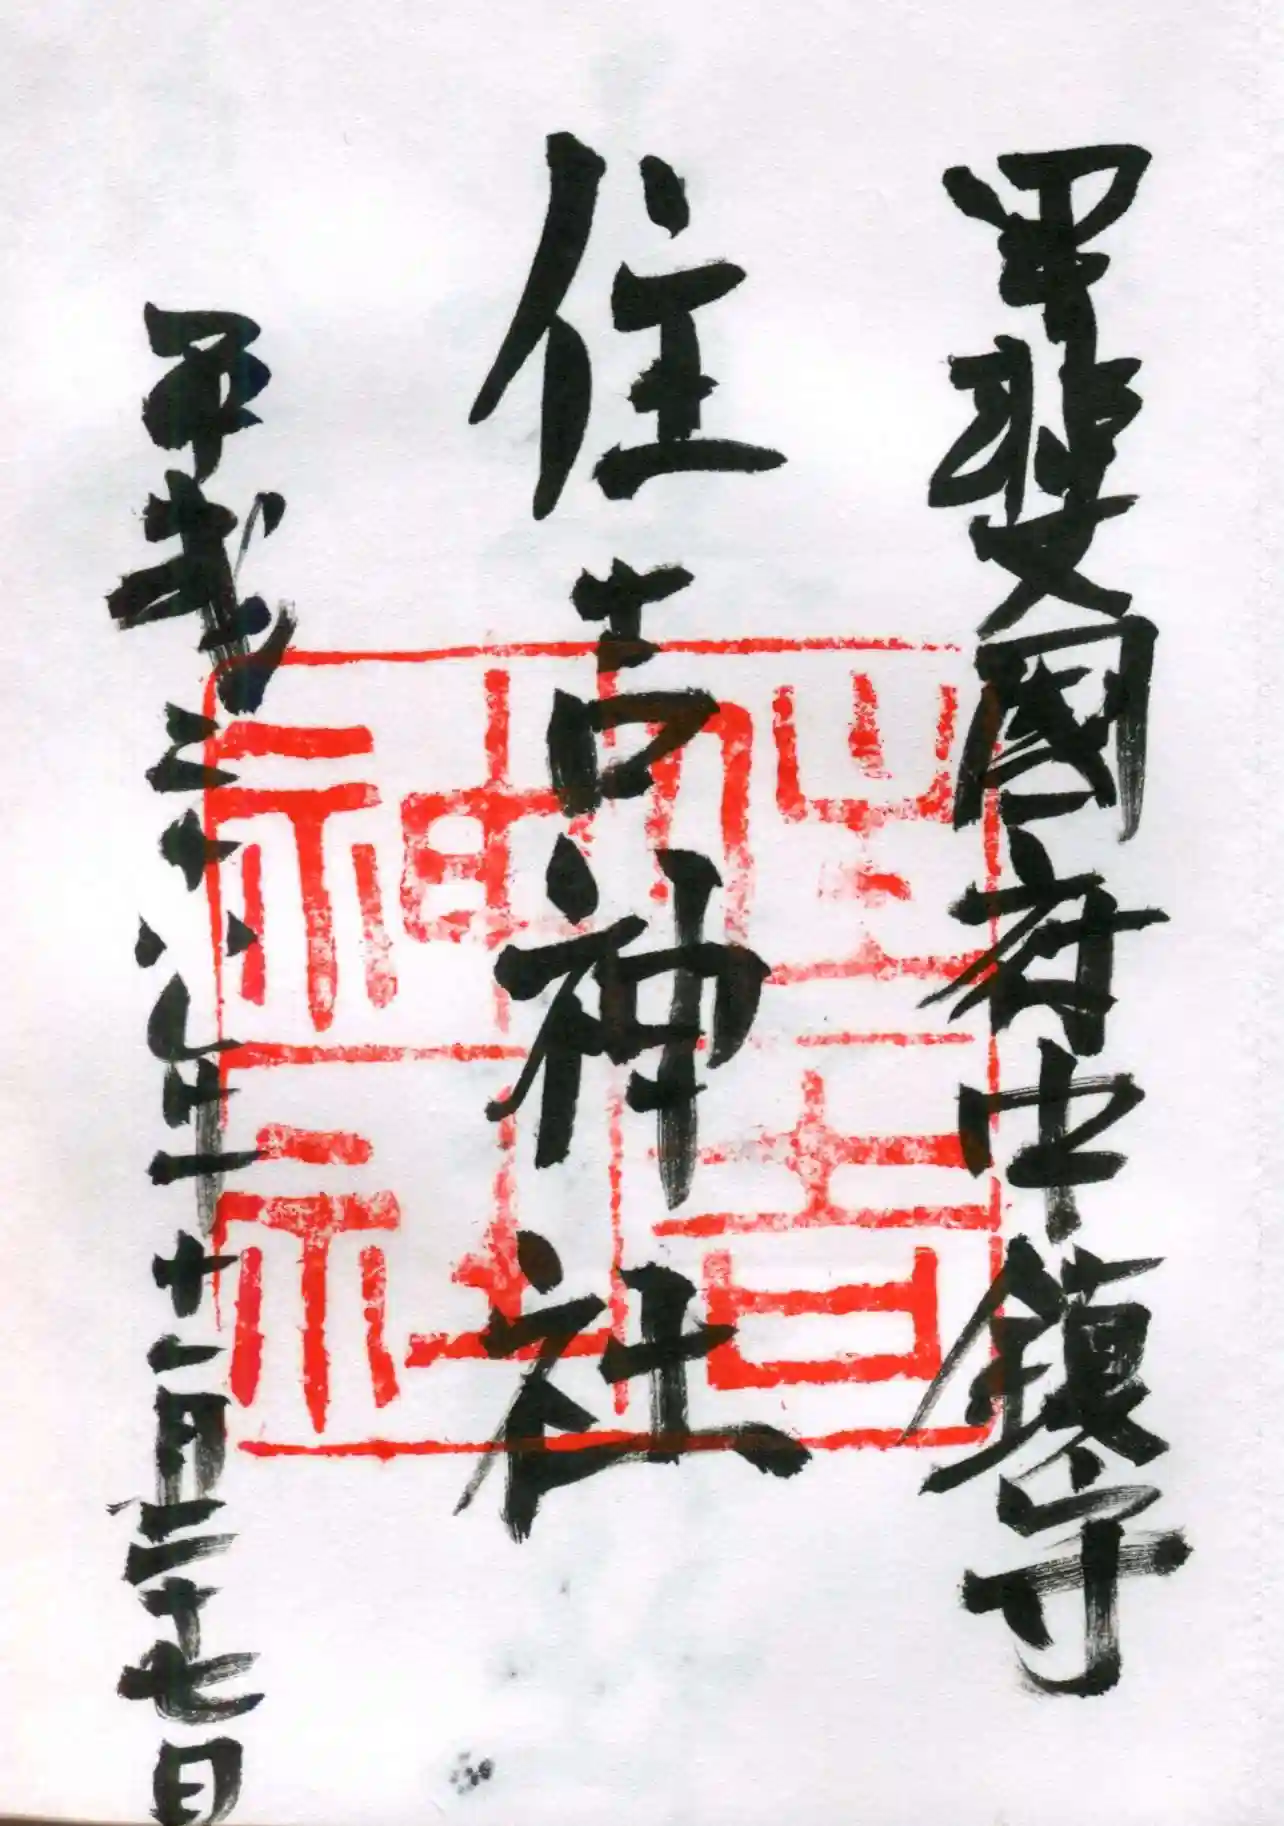 甲斐國府中鎮守
住吉神社
平成二十八年十一月二十七日
住吉
神社